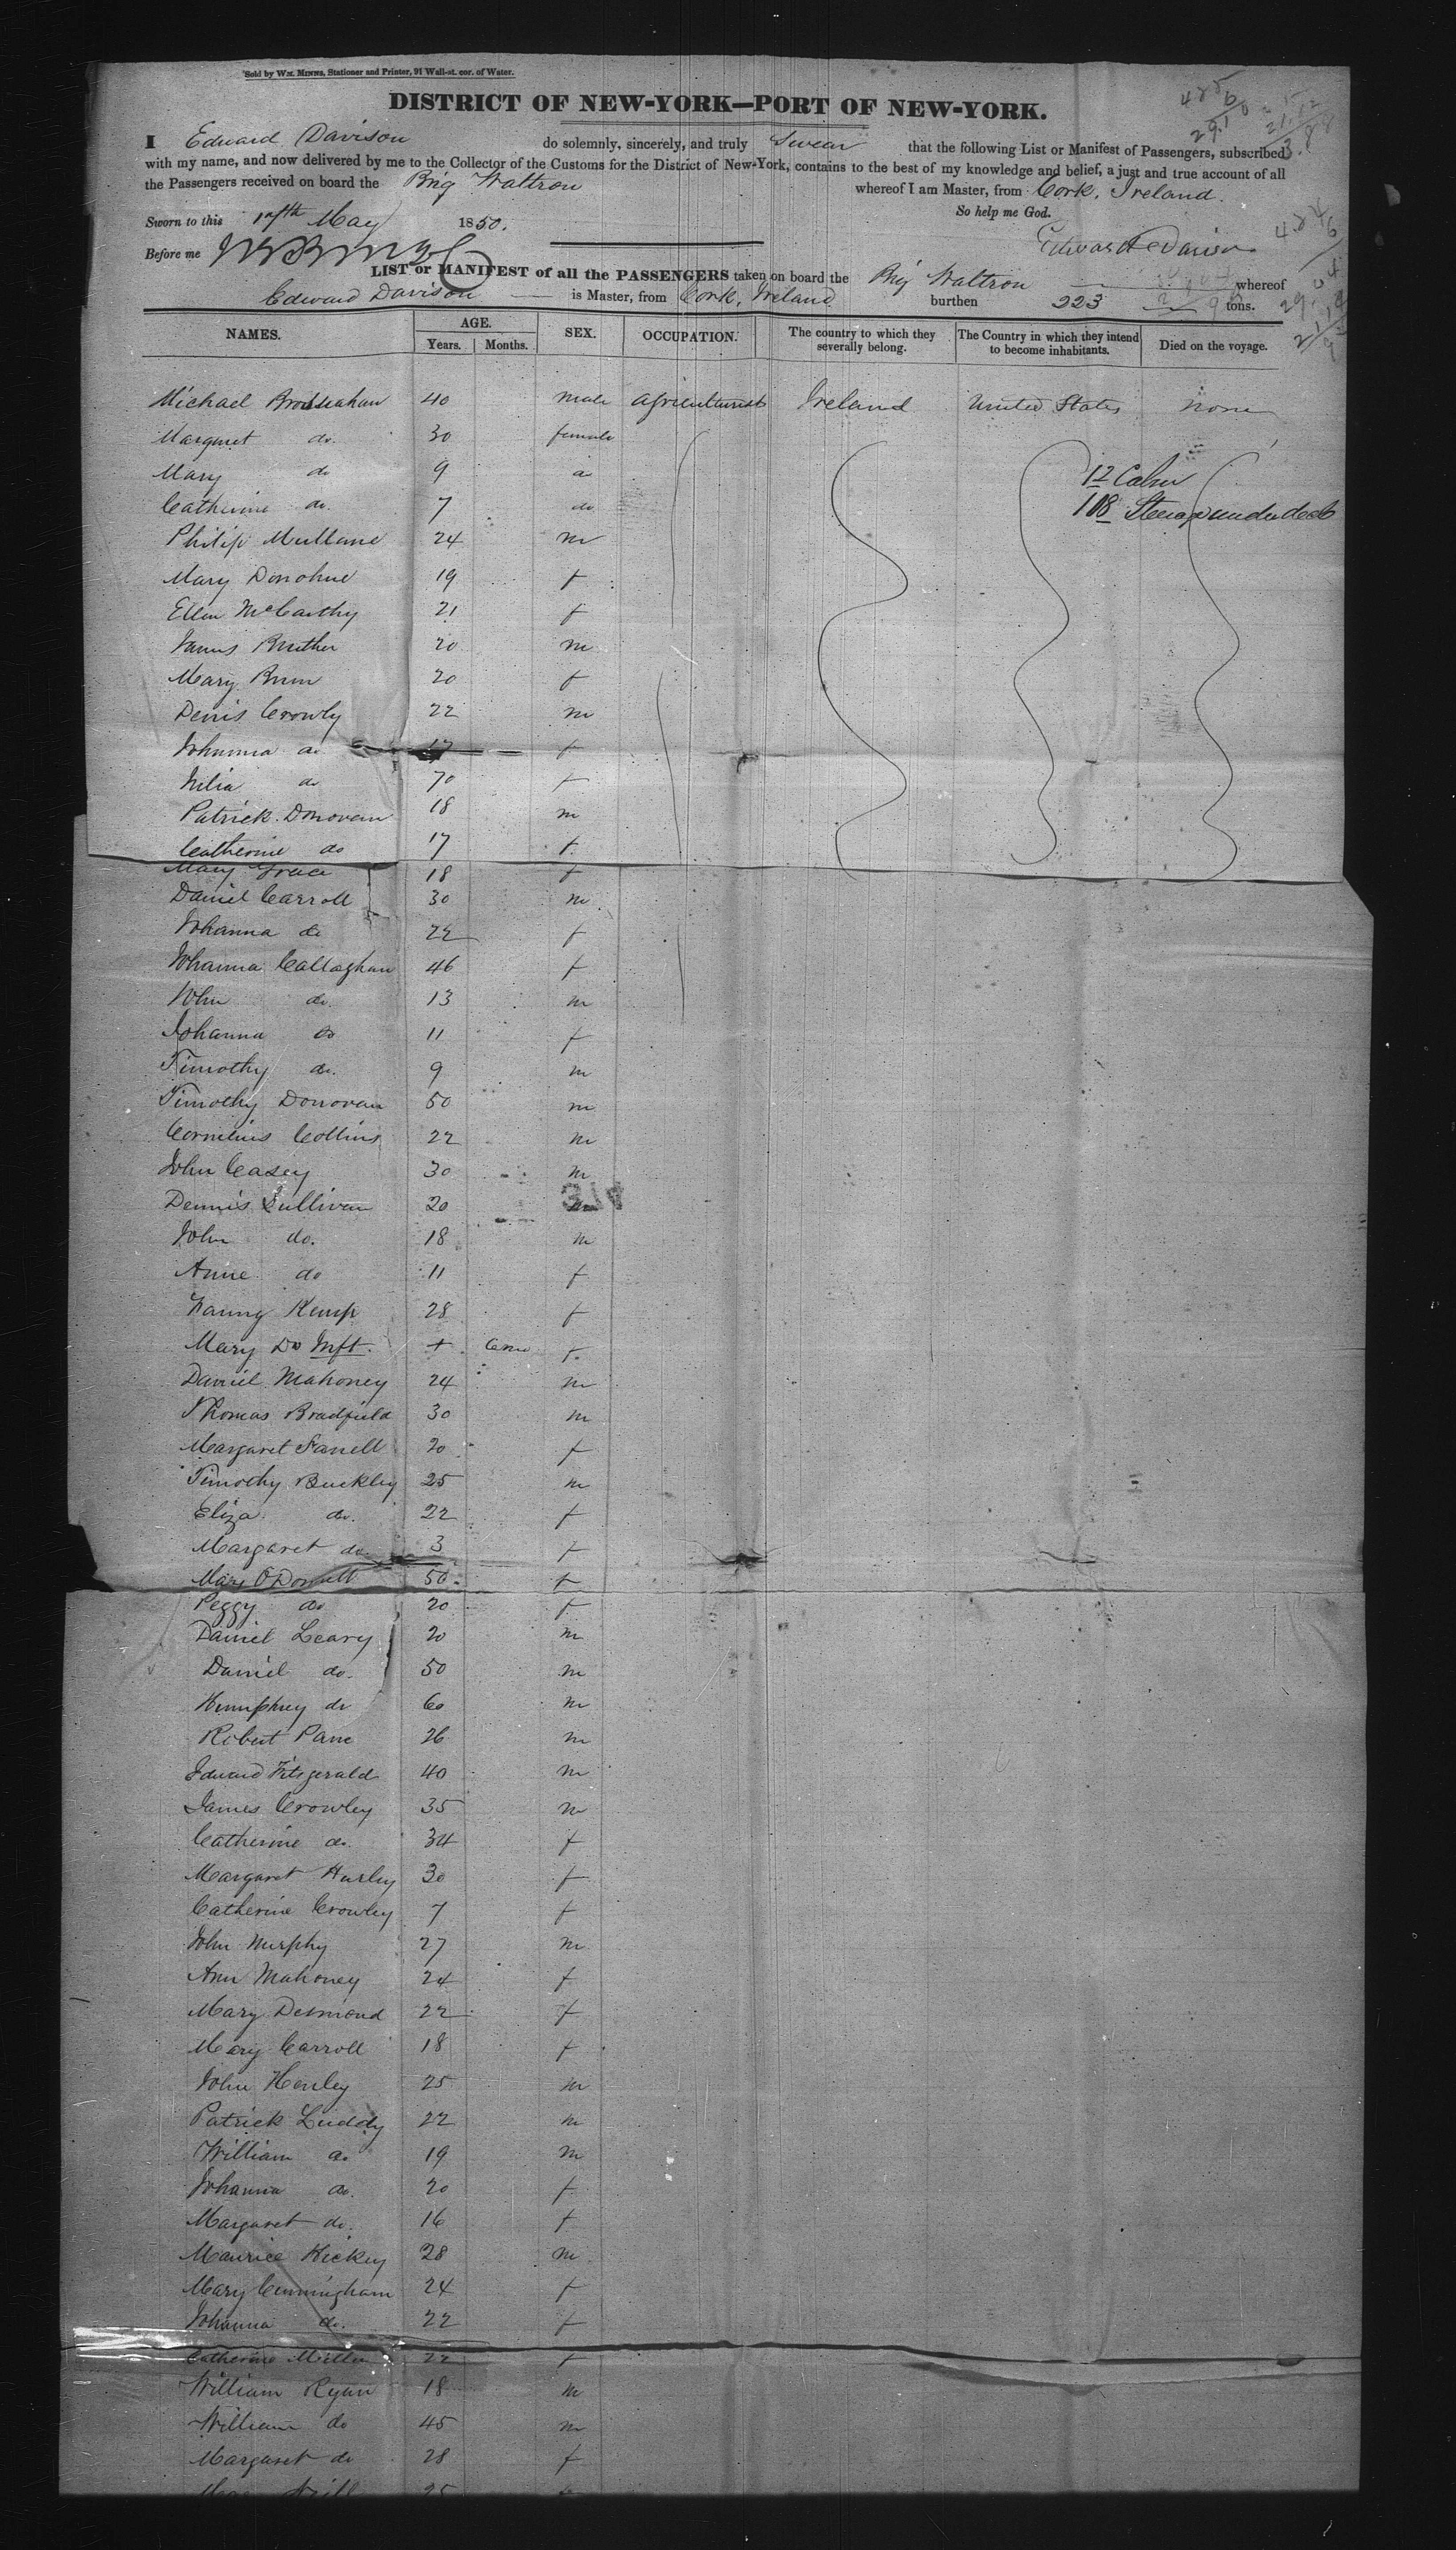 Sold by Wm. Minns, Stationer and Printer, 91 Wall-st. cor. of Water.
DISTRICT OF NEW-YORK—PORT OF NEW-YORK.
I Edward Davison do solemnly, sincerely, and truly Swear that the following List or Manifest of Passengers, subscribed
with my name, and now delivered by me to the Collector of the Customs for the District of New-York, contains to the best of my knowledge and belief, a just and true account of all
the Passengers received on board the Brig Waltron whereof I am Master, from Cork, Ireland.
So help me God.
Sworn to this May 1850.
Edward Davison
Before me
LIST or MANIFEST of all the PASSENGERS taken on board the Brig Waltron whereof
Edward Davison is Master, from Cork, Ireland burthen 223 tons.
NAMES. AGE. Years. Months. SEX. OCCUPATION. The country to which they severally belong. The Country in which they intend to become inhabitants. Died on the voyage.
Michael 40 male agriculturist Ireland United States none
Margaret do. 30 female
Mary do 9
12
Catherine do. 7 do
108
Philip Mullane 24 m
Mary Donohue 19 f
Ellen McCarthy 21 f
James 20 m
Mary 20 f
Denis Crowly 22 m
Johanna do 17 f
do 70 f
Patrick Donovan 18 m
Catherine do 17 f
Mary Grace 18 f
Daniel Carroll 30 m
Johanna do 22 f
Johanna Callaghan 46 f
John do. 13 m
Johanna do 11 f
Timothy do. 9 m
Timothy Donovan 50 m
Cornelius Collins 22 m
John Casey 30 m
Dennis Sullivan 20 m
John do. 18 m
Anne do 11 f
Fanny Kemp 28 f
Mary Do Inft. + 6 mo f.
Daniel Mahoney 24 m
Thomas Bradfield 30 m
Margaret Farrell 20 f
Timothy Buckley 25 m
Eliza do. 22 f
Margaret do. 3 f
Mary O'Donnell 50 f
Peggy do 20 f
Daniel Leary 20 m
Daniel do. 50 m
Humphrey do 60 m
Robert 26 m
Edward Fitzgerald 40 m
James Crowley 35 m
Catherine do. 34 f
Margaret Hurley 30 f
Catherine Crowley 7 f
John Murphy 27 m
Ann Mahoney 24 f
Mary Desmond 22 f
Mary Carroll 18 f
John Henley 25 m
Patrick Luddy 22 m
William do 19 m
Johanna do. 20 f
Margaret do. 16 f
Maurice Hickey 28 m
Mary Cunningham 24 f
Johanna do. 22 f
Catherine 22 f
William Ryan 18 m
William do 45 m
Margaret do 28 f
25